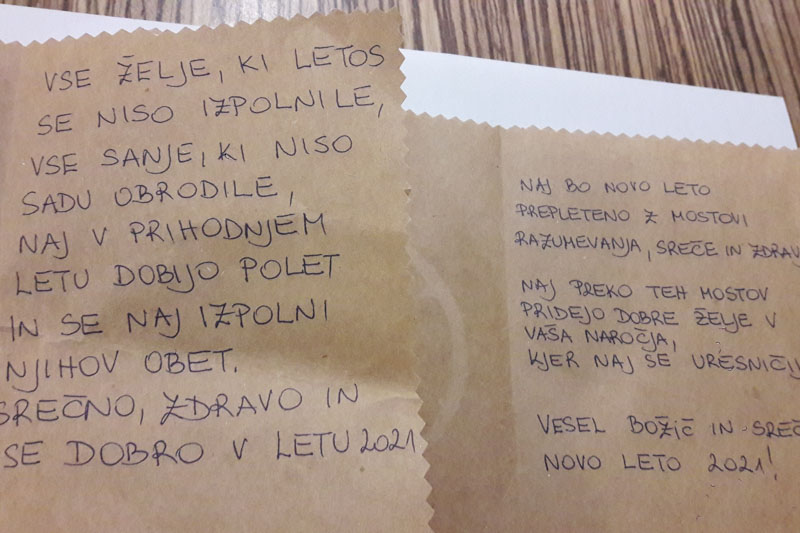 VSE ŽELJE, KI LETOS
SE NISO IZPOLNILE,
VSE SANJE, KI NISO
SADU OBRODILE,
NAJ V PRIHODNJEM
LETU DOBIJO POLET
IN SE NAJ IZPOLNI
NJIHOV OBET.
SREČNO, ZDRAVO IN
SE DOBRO V LETU 2021
NAJ BO NOVO LETO
PREPLETENO Z MOSTOVI
RAZUMEVANJA, SREČE IN ZDRAV
NAJ PREKO TEH MOSTOV
PRIDEJO DOBRE ŽELJE V
VAŠA NAROČJA,
KJER NAJ SE URESNIČIJ
VESEL BOŽIČ IN SREČ
NOVO LETO 2021!